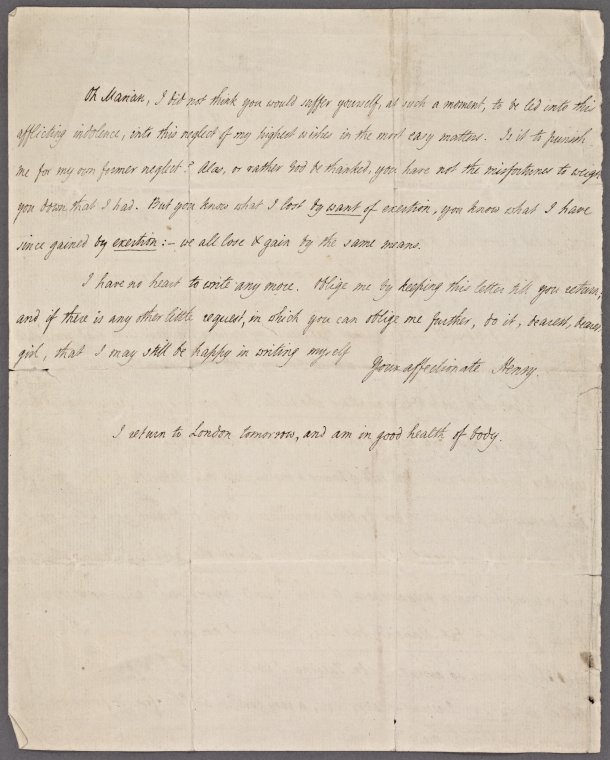 Oh Marian, I did not think you would suffer yourself, at such a moment, to be led into this
afflicting indolence, into this neglect of my highest wishes in the most easy matters. Is it to punish
me for my own former neglect? Alas, or rather God be thanked, you have not the misfortunes to weigh
you down that I had. But you know what I lost by want of exertion, you know what I have
since gained by exertion:- we all lose & gain by the same means.
I have no heart to write any more. Oblige me by keeping this letter till you return;
and if there is any other little request, in which you can oblige me further, do it, dearest, dearest
girl, that I may still be happy in writing myself
Your affectionate Henry.
I return to London tomorrow, and am in good health of body.